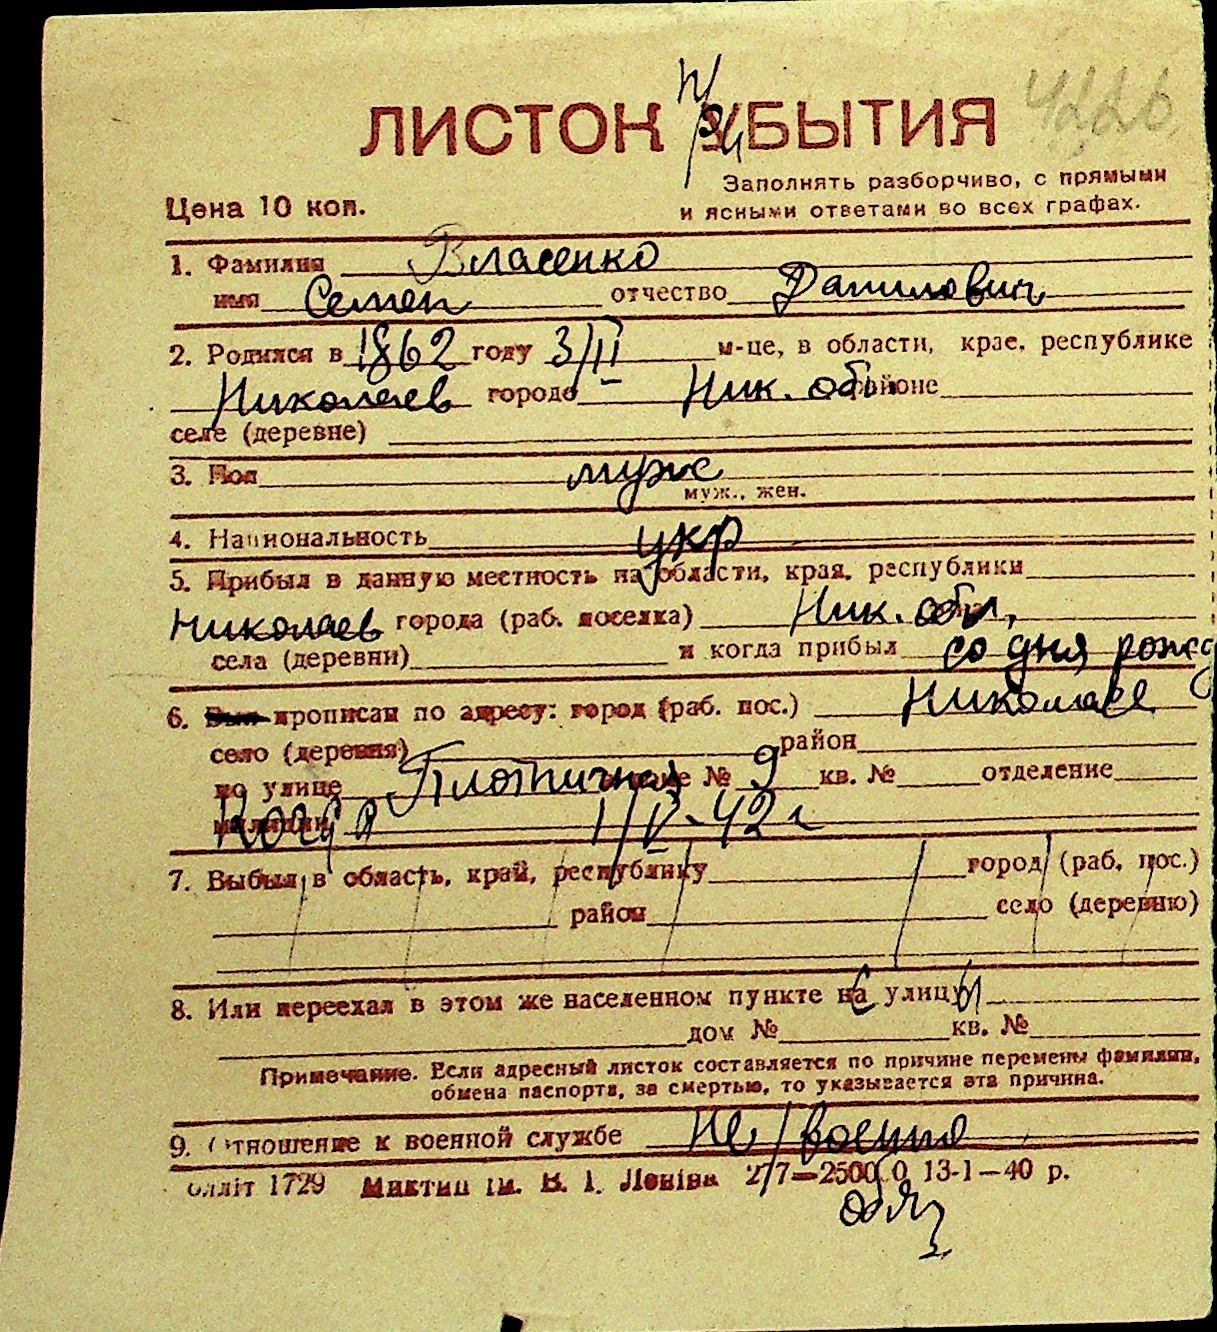 4226
ЛИСТОК ПРИБЫТИЯ
Цена 10 коп.
Заполнять разборчиво, с прямыми
и ясными ответами во всех графах.
1. Фамилия Власенко
имя Семен отчество Данилович
2. Родился в 1862 году 3/II м-це, в области, крае, республике
Николаев городе Ник. обл. районе
селе (деревне)
3. Пол муж
муж., жен.
4. Национальность укр
5. Прибыл в данную местность из области, края, республики
Николаев города (раб. поселка) Ник. обл,
села (деревни) и когда прибыл со дня рожд
6. Был прописан по адресу: город (раб. пос.) Николаев
село (деревня) район
по улице Плотничная доме № 9 кв. № отделение
милиции Когда 1/IV-42 г
7. Выбыл в область, край, республику город (раб. пос.)
район село (деревню)
8. Или переехал в этом же населенном пункте с улицы
дом № кв. №
Примечание. Если адресный листок составляется по причине перемены фамилии,
обмена паспорта, за смертью, то указывается эта причина.
9. Отношение к военной службе Не/военно
облліт 1729 Миктип ім. В. І. Леніна 277—25000 13-1—40 р.
обяз